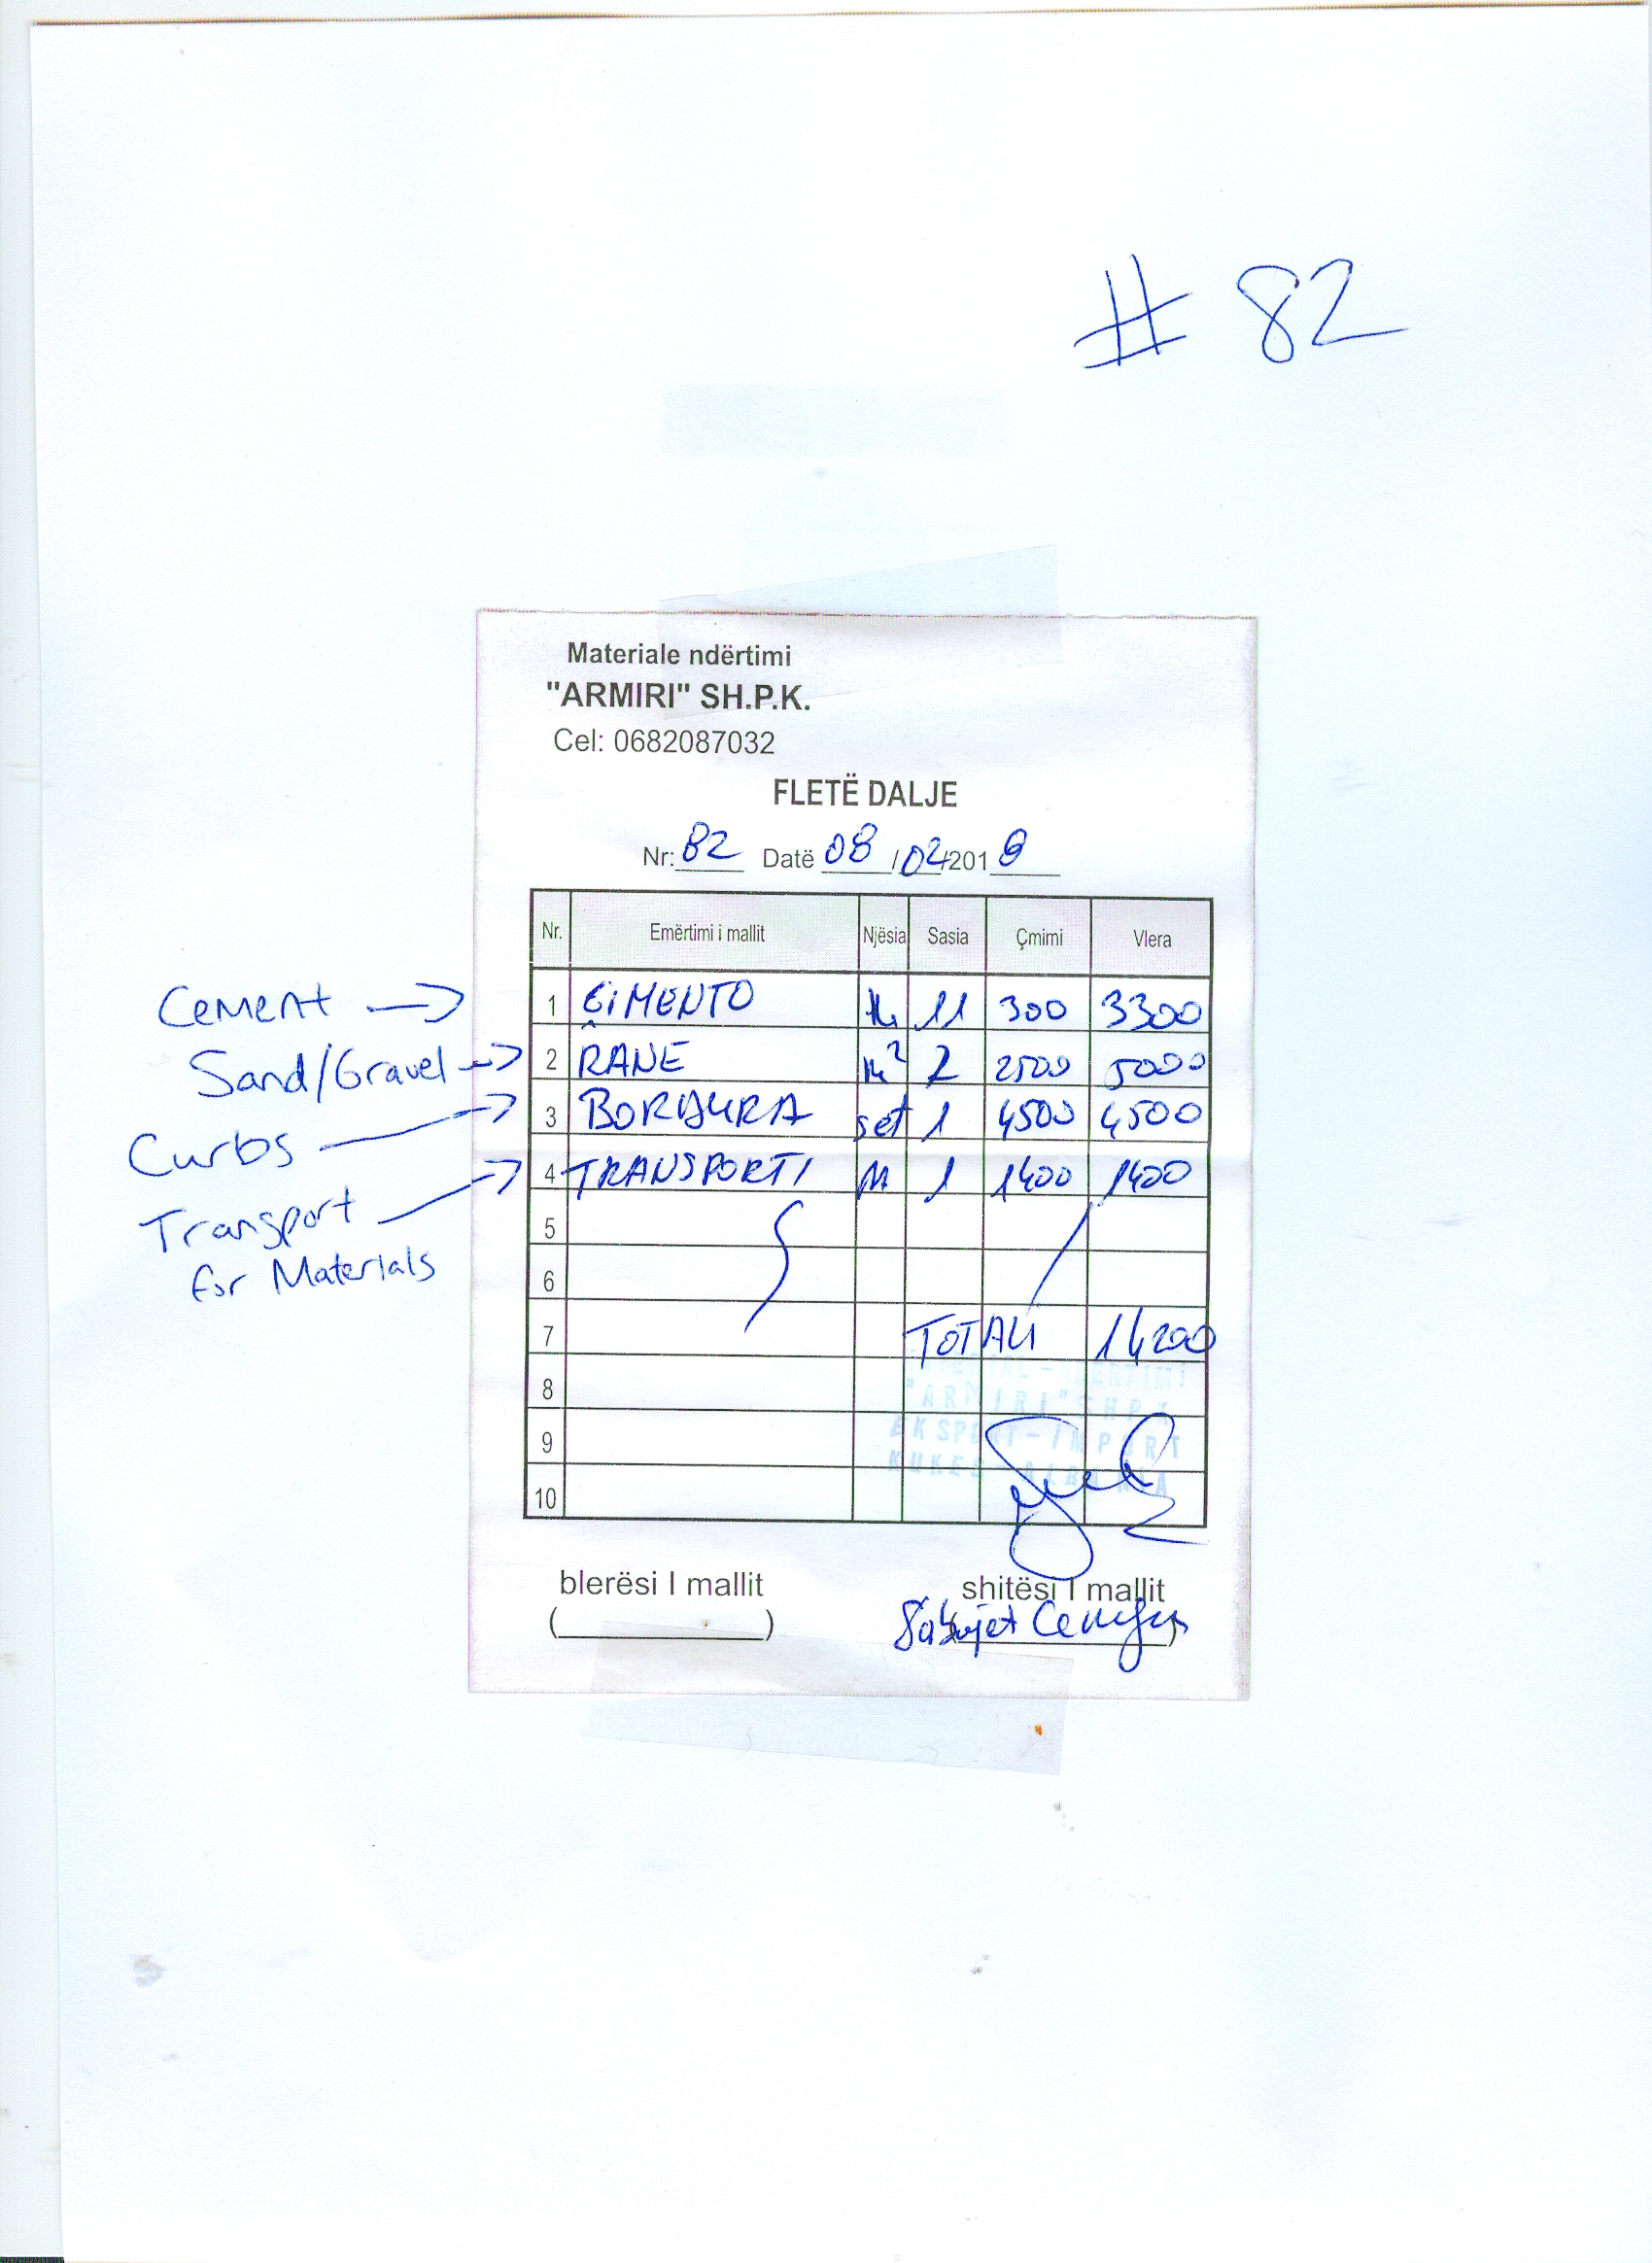 # 82
Materiale ndërtimi
"ARMIRI" SH.P.K.
Cel: 0682087032
FLETË DALJE
Nr: 82 Datë 08/02/2019
Nr. Emërtimi i mallit Njësia Sasia Çmimi Vlera
Cement → 1 ÇIMENTO 11 300 3300
Sand/Gravel → 2 RANE m² 2 2500 5000
Curbs → 3 BORDURA set 1 4500 4500
Transport → 4 TRANSPORTI M 1 1400 1400
for Materials
5
6
7 TOTALI 14200
8 "ARMIRI" SHPK
9 EKSPORT-IMPORT
10 KUKES ALBANIA
blerësi I mallit shitësi I mallit
(__________) (__________)